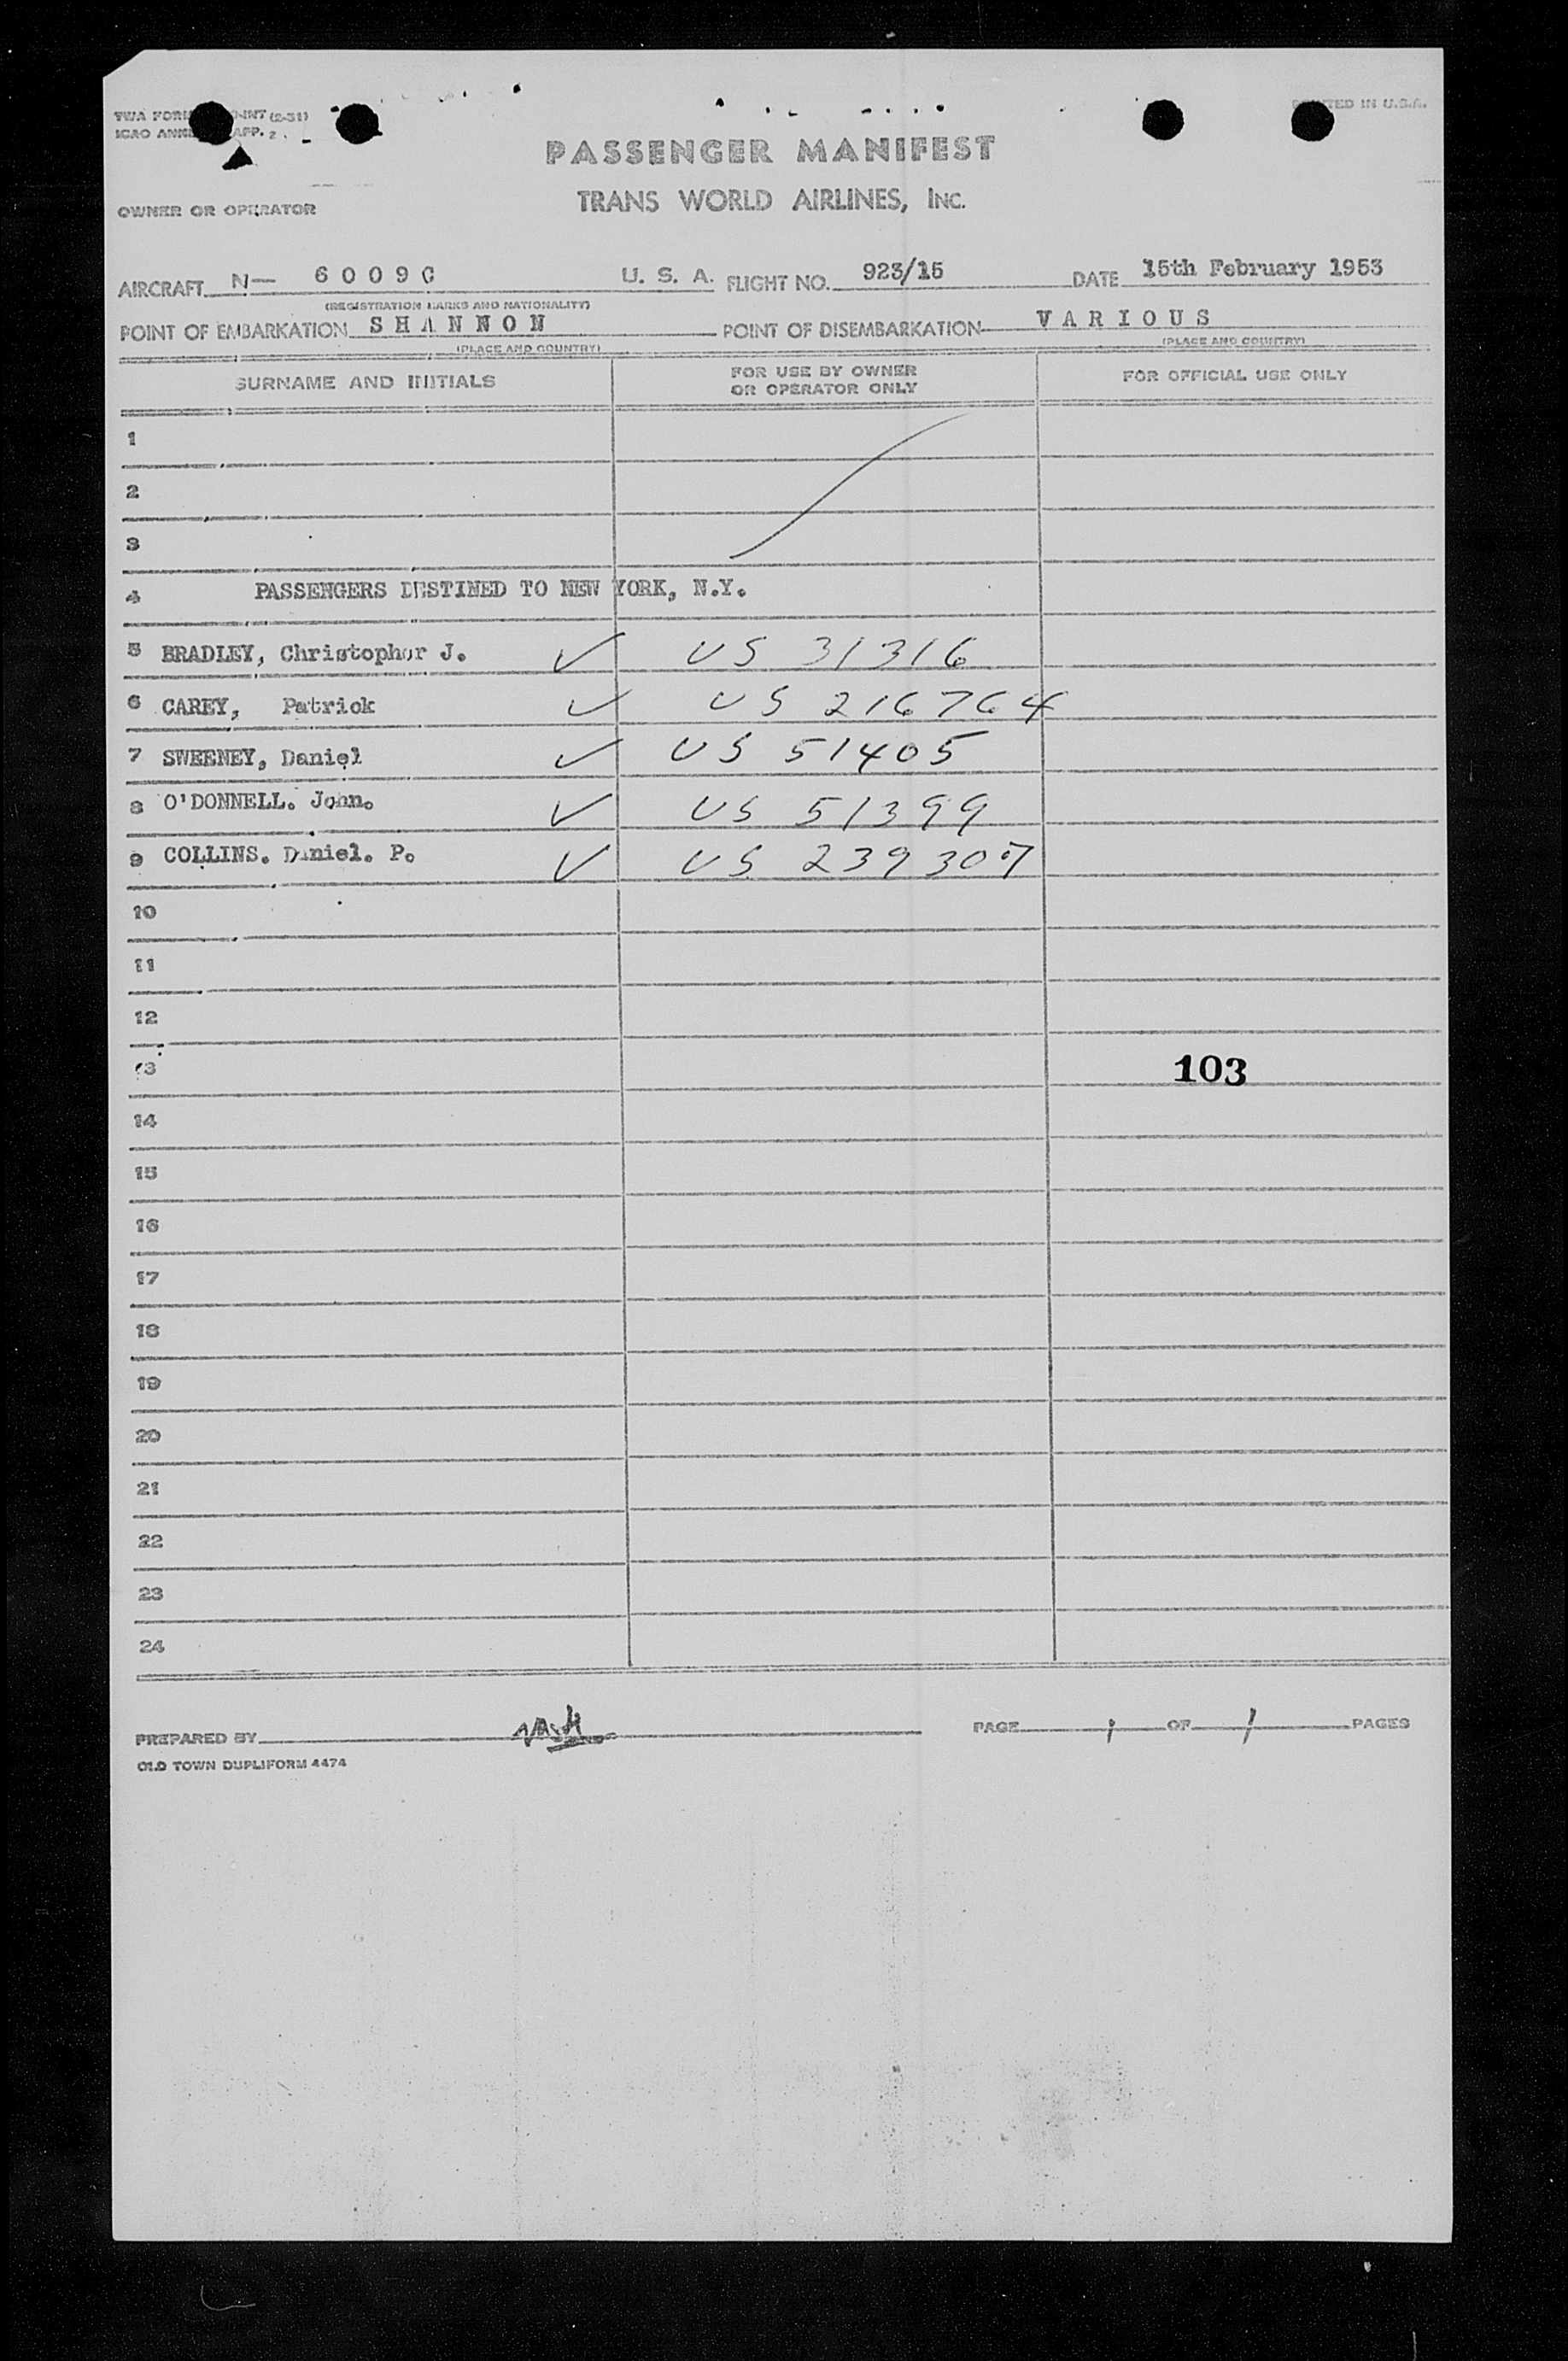 TWA FORM -INT (2-51)
ICAO ANNE APP. 2
PRINTED IN U.S.A.
PASSENGER MANIFEST
TRANS WORLD AIRLINES, INC.
OWNER OR OPERATOR
AIRCRAFT N— 6009C U. S. A. FLIGHT NO. 923/15 DATE 15th February 1953
(REGISTRATION MARKS AND NATIONALITY)
POINT OF EMBARKATION SHANNON POINT OF DISEMBARKATION VARIOUS
(PLACE AND COUNTRY) (PLACE AND COUNTRY)
SURNAME AND INITIALS FOR USE BY OWNER OR OPERATOR ONLY FOR OFFICIAL USE ONLY
1
2
3
4 PASSENGERS DESTINED TO NEW YORK, N.Y.
5 BRADLEY, Christopher J. ✓ US 31316
6 CAREY, Patrick ✓ US 216764
7 SWEENEY, Daniel ✓ US 51405
8 O'DONNELL. John. ✓ US 51399
9 COLLINS. Daniel. P. ✓ US 239307
10
11
12
13 103
14
15
16
17
18
19
20
21
22
23
24
PREPARED BY PAGE 1 OF 1 PAGES
OLD TOWN DUPLIFORM 4474